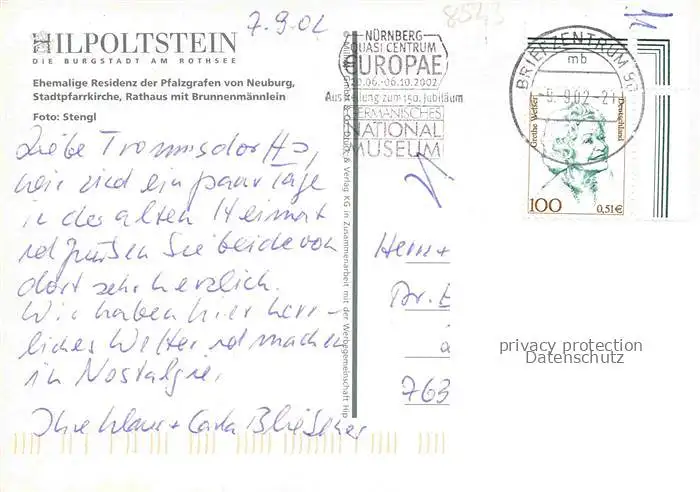 7.9.02
8543
HILPOLTSTEIN
DIE BURGSTADT AM ROTHSEE
Ehemalige Residenz der Pfalzgrafen von Neuburg,
Stadtpfarrkirche, Rathaus mit Brunnenmännlein
Foto: Stengl
Liebe Trommsdorffs,
wir sind ein paar Tage
in der alten Heimat
und grüßen Sie beide von
dort sehr herzlich.
Wir haben hier herr-
liches Wetter und machen
in Nostalgie.
Ihre Klaus + Carla
NÜRNBERG
QUASI CENTRUM
EUROPAE
20.06.-06.10.2002
Ausstellung zum 150. Jubiläum
GERMANISCHES
NATIONAL
MUSEUM
& Verlag KG in Zusammenarbeit mit der Werbegemeinschaft Hip
BRIEFZENTRUM
mb
-9.9.02-21
Grethe Weiser
Deutschland
100
0,51€
Herrn +
Dr.
763
privacy protection
Datenschutz